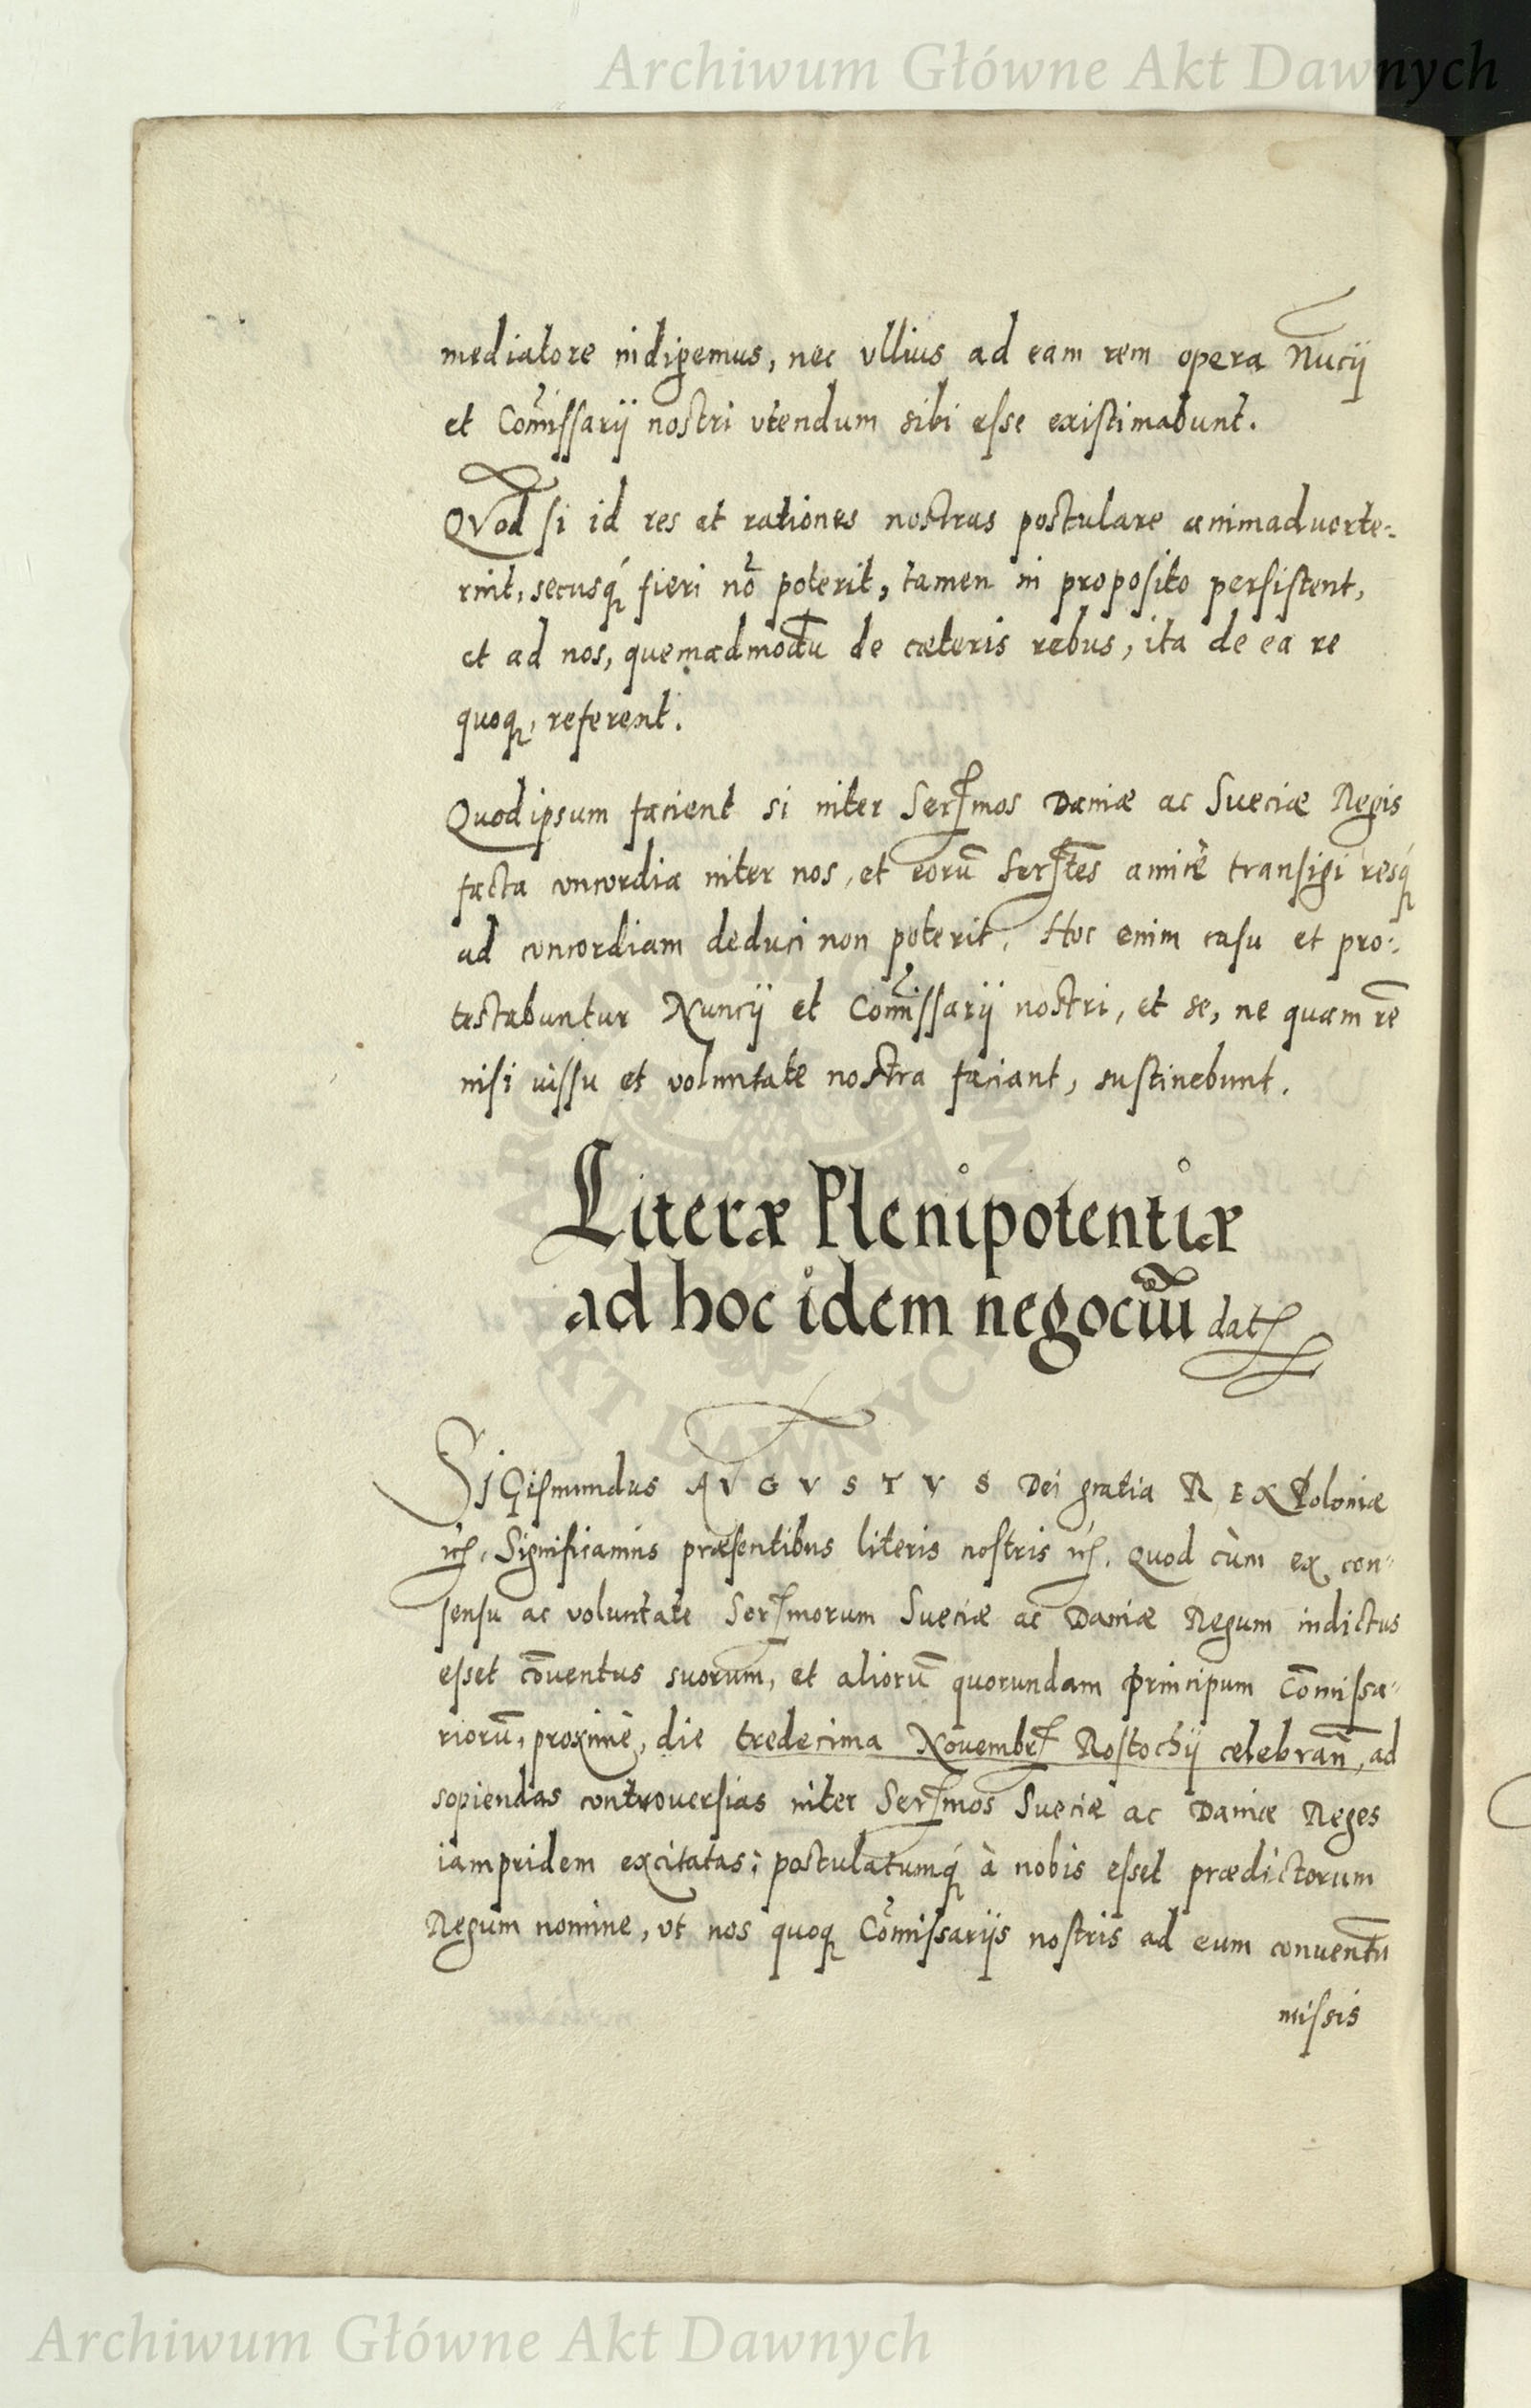 Archiwum Główne Akt Dawnych
mediatore indigemus, nec vllius ad eam rem opera Nūcij
et Com̃issarij nostri vtendum sibi esse existimabunt.
QVod si id res et rationes nostras postulare animaduerte-
rint, secusq́ fieri nõ poterit, tamen in proposito persistent,
et ad nos, quemadmodū de cæteris rebus, ita de ea re
quoq, referent.
Quod ipsum facient si inter Serꝭmos Daniæ ac Sueciæ Regis
facta concordia inter nos, et eorū Serꝭtes amicè transigi resq́
ad concordiam deduci non poterit. Hoc enim casu et pro-
testabuntur Nuncij et Com̃issarij nostri, et se, ne quam rē
nisi iussu et voluntate nostra faciant, sustinebunt.
Literæ Plenipotentiæ
ad hoc idem negociū datꝭ
SIGismundus AVGVSTVS Dei gratia REX Poloniæ
ꝛcꝭ. Significamus præsentibus literis nostris ꝛcꝭ. Quod cùm ex con-
sensu ac voluntate Serꝭmorum Sueciæ ac Daniæ Regum indictus
esset cōuentus suorum, et aliorū quorundam principum Com̄issa-
riorū, proximè, die tredecima Nouembrꝭ Rostochij celebran̄, ad
sopiendas controuersias inter Serꝭmos Sueciæ ac Daniæ Reges
iampridem excitatas; postulatumq́ à nobis esset prædictorum
Regum nomine, vt nos quoq Com̃issarijs nostris ad eum conuentū
missis
Archiwum Główne Akt Dawnych